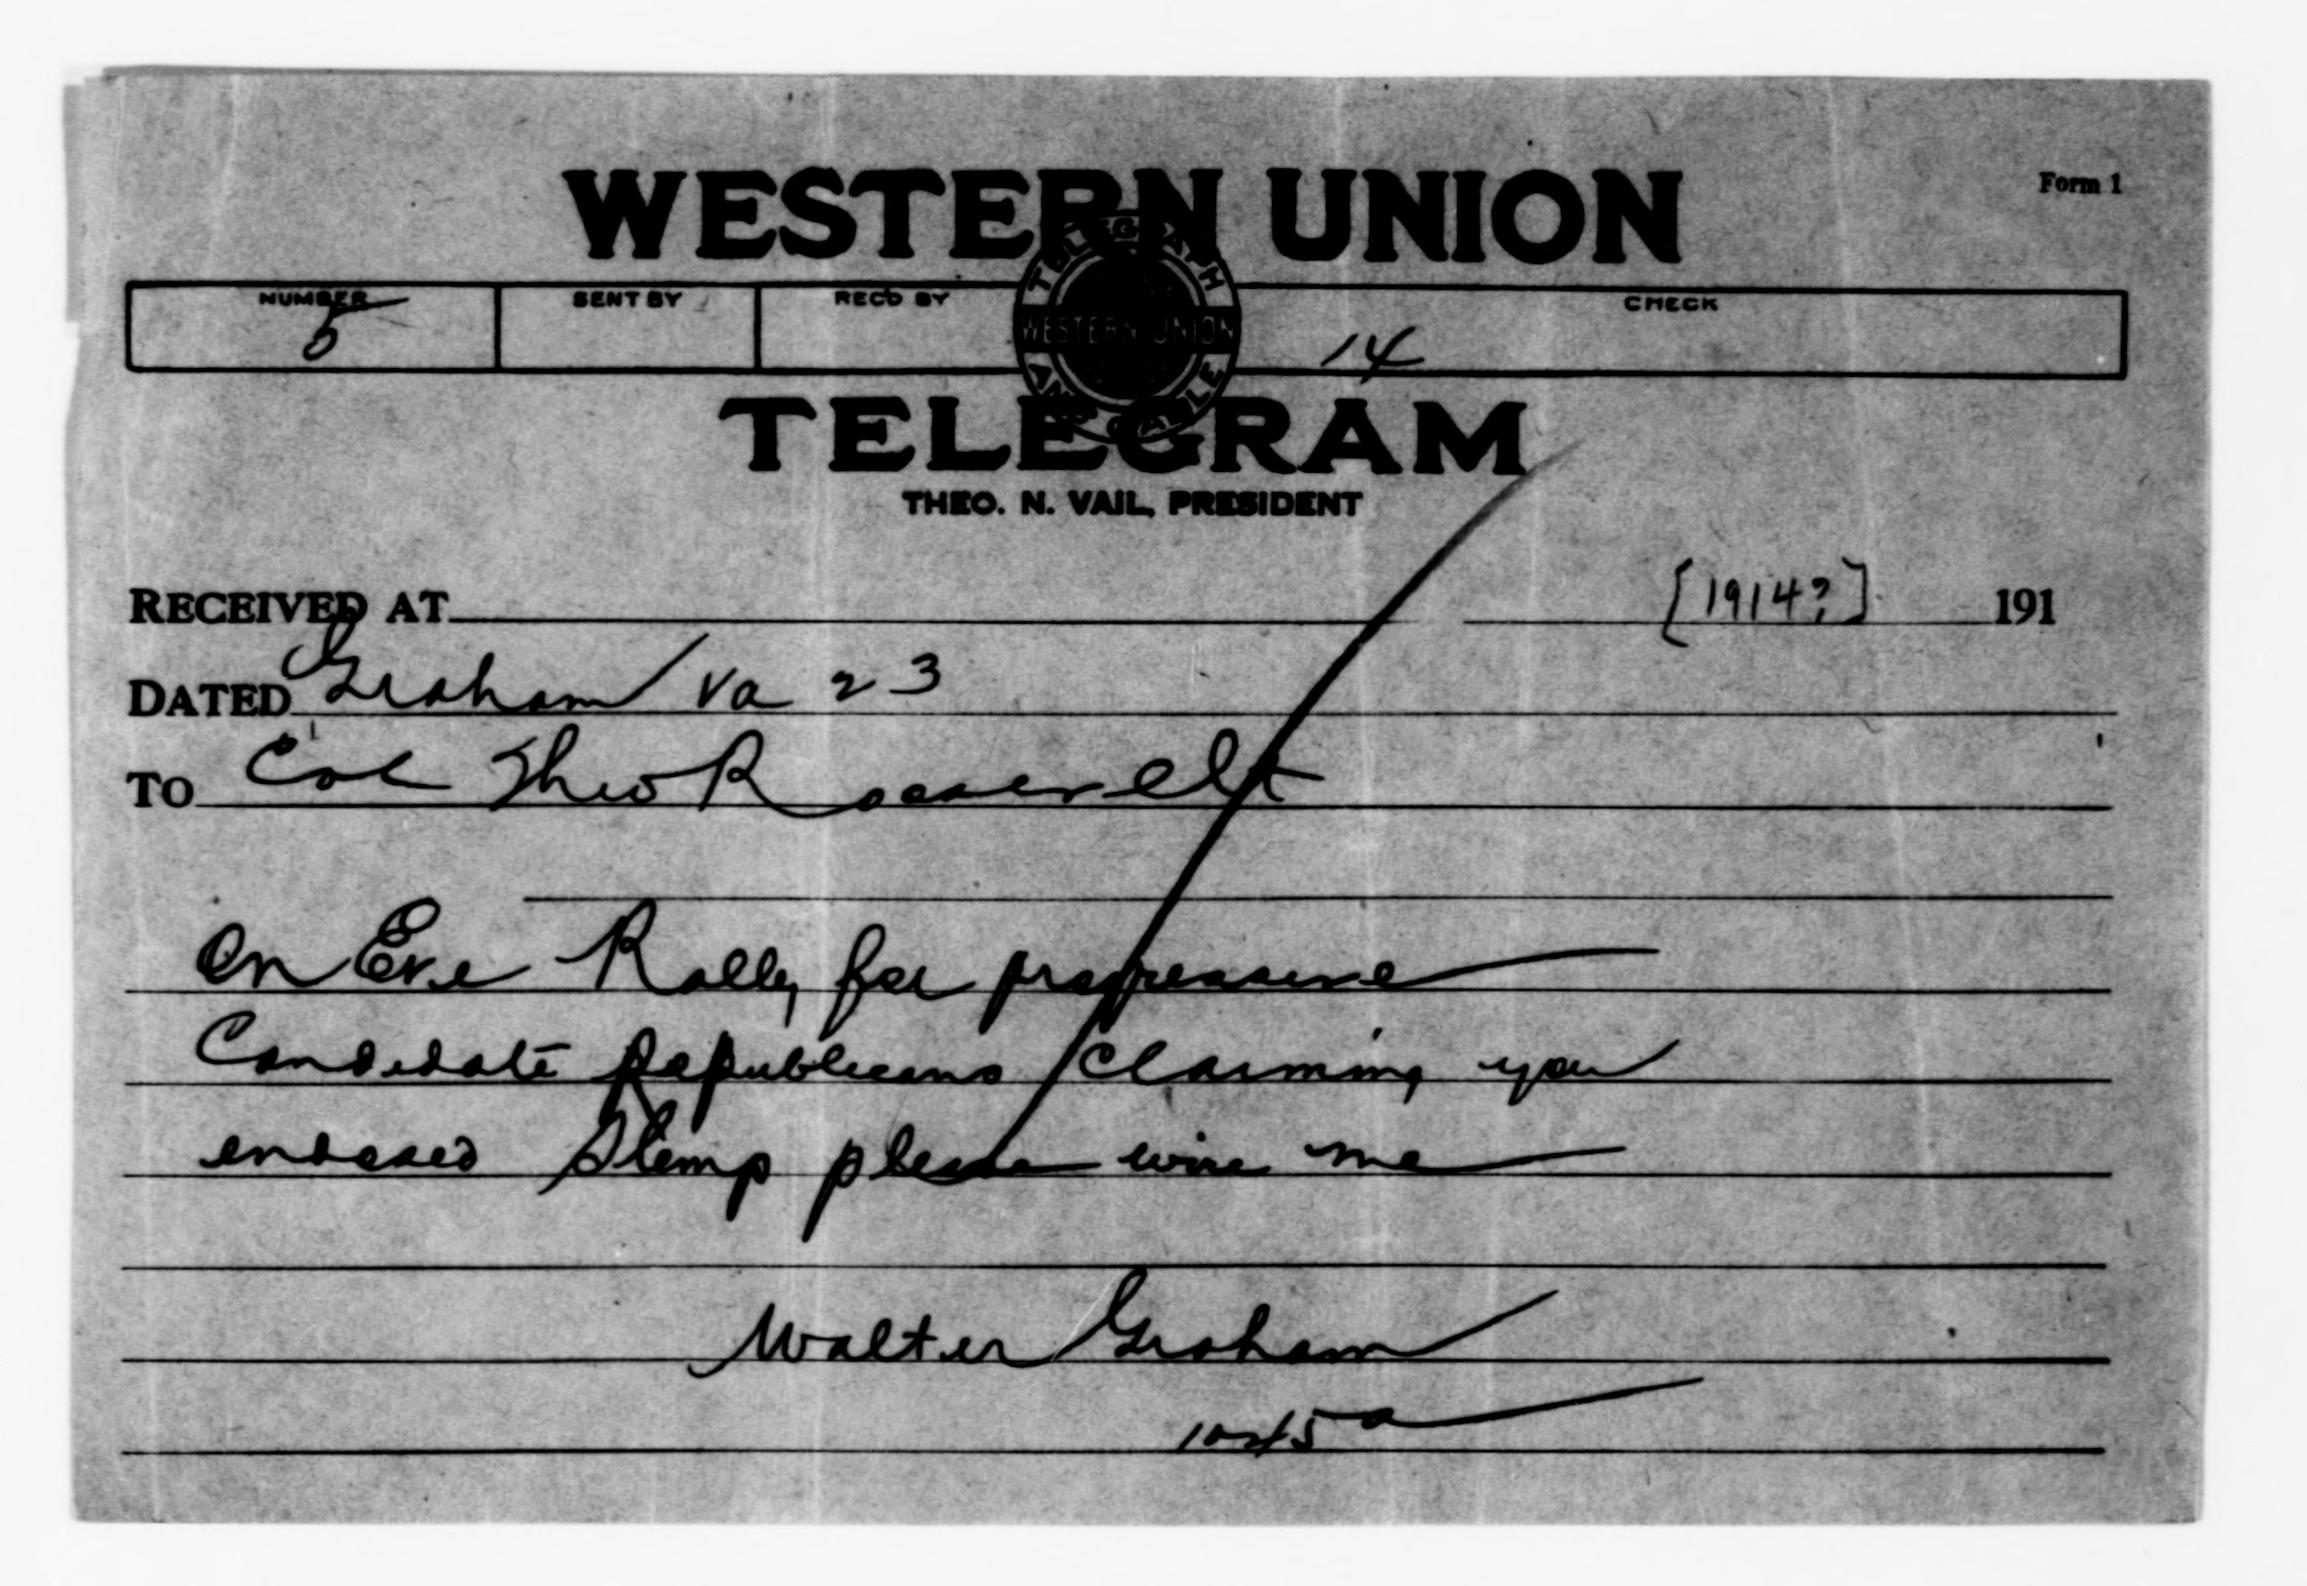 WESTERN UNION
Form 1
TELEGRAPH AND CABLE
WESTERN UNION
NUMBER SENT BY REC'D BY CHECK
5 14
TELEGRAM
THEO. N. VAIL, PRESIDENT
RECEIVED AT [1914?] 191
DATED Graham Va 23
TO Col Theo Roosevelt
On Eve Rally for progressive
Candidate Republicans claiming you
endosed Slemp please wire me
Walter Graham
1045a